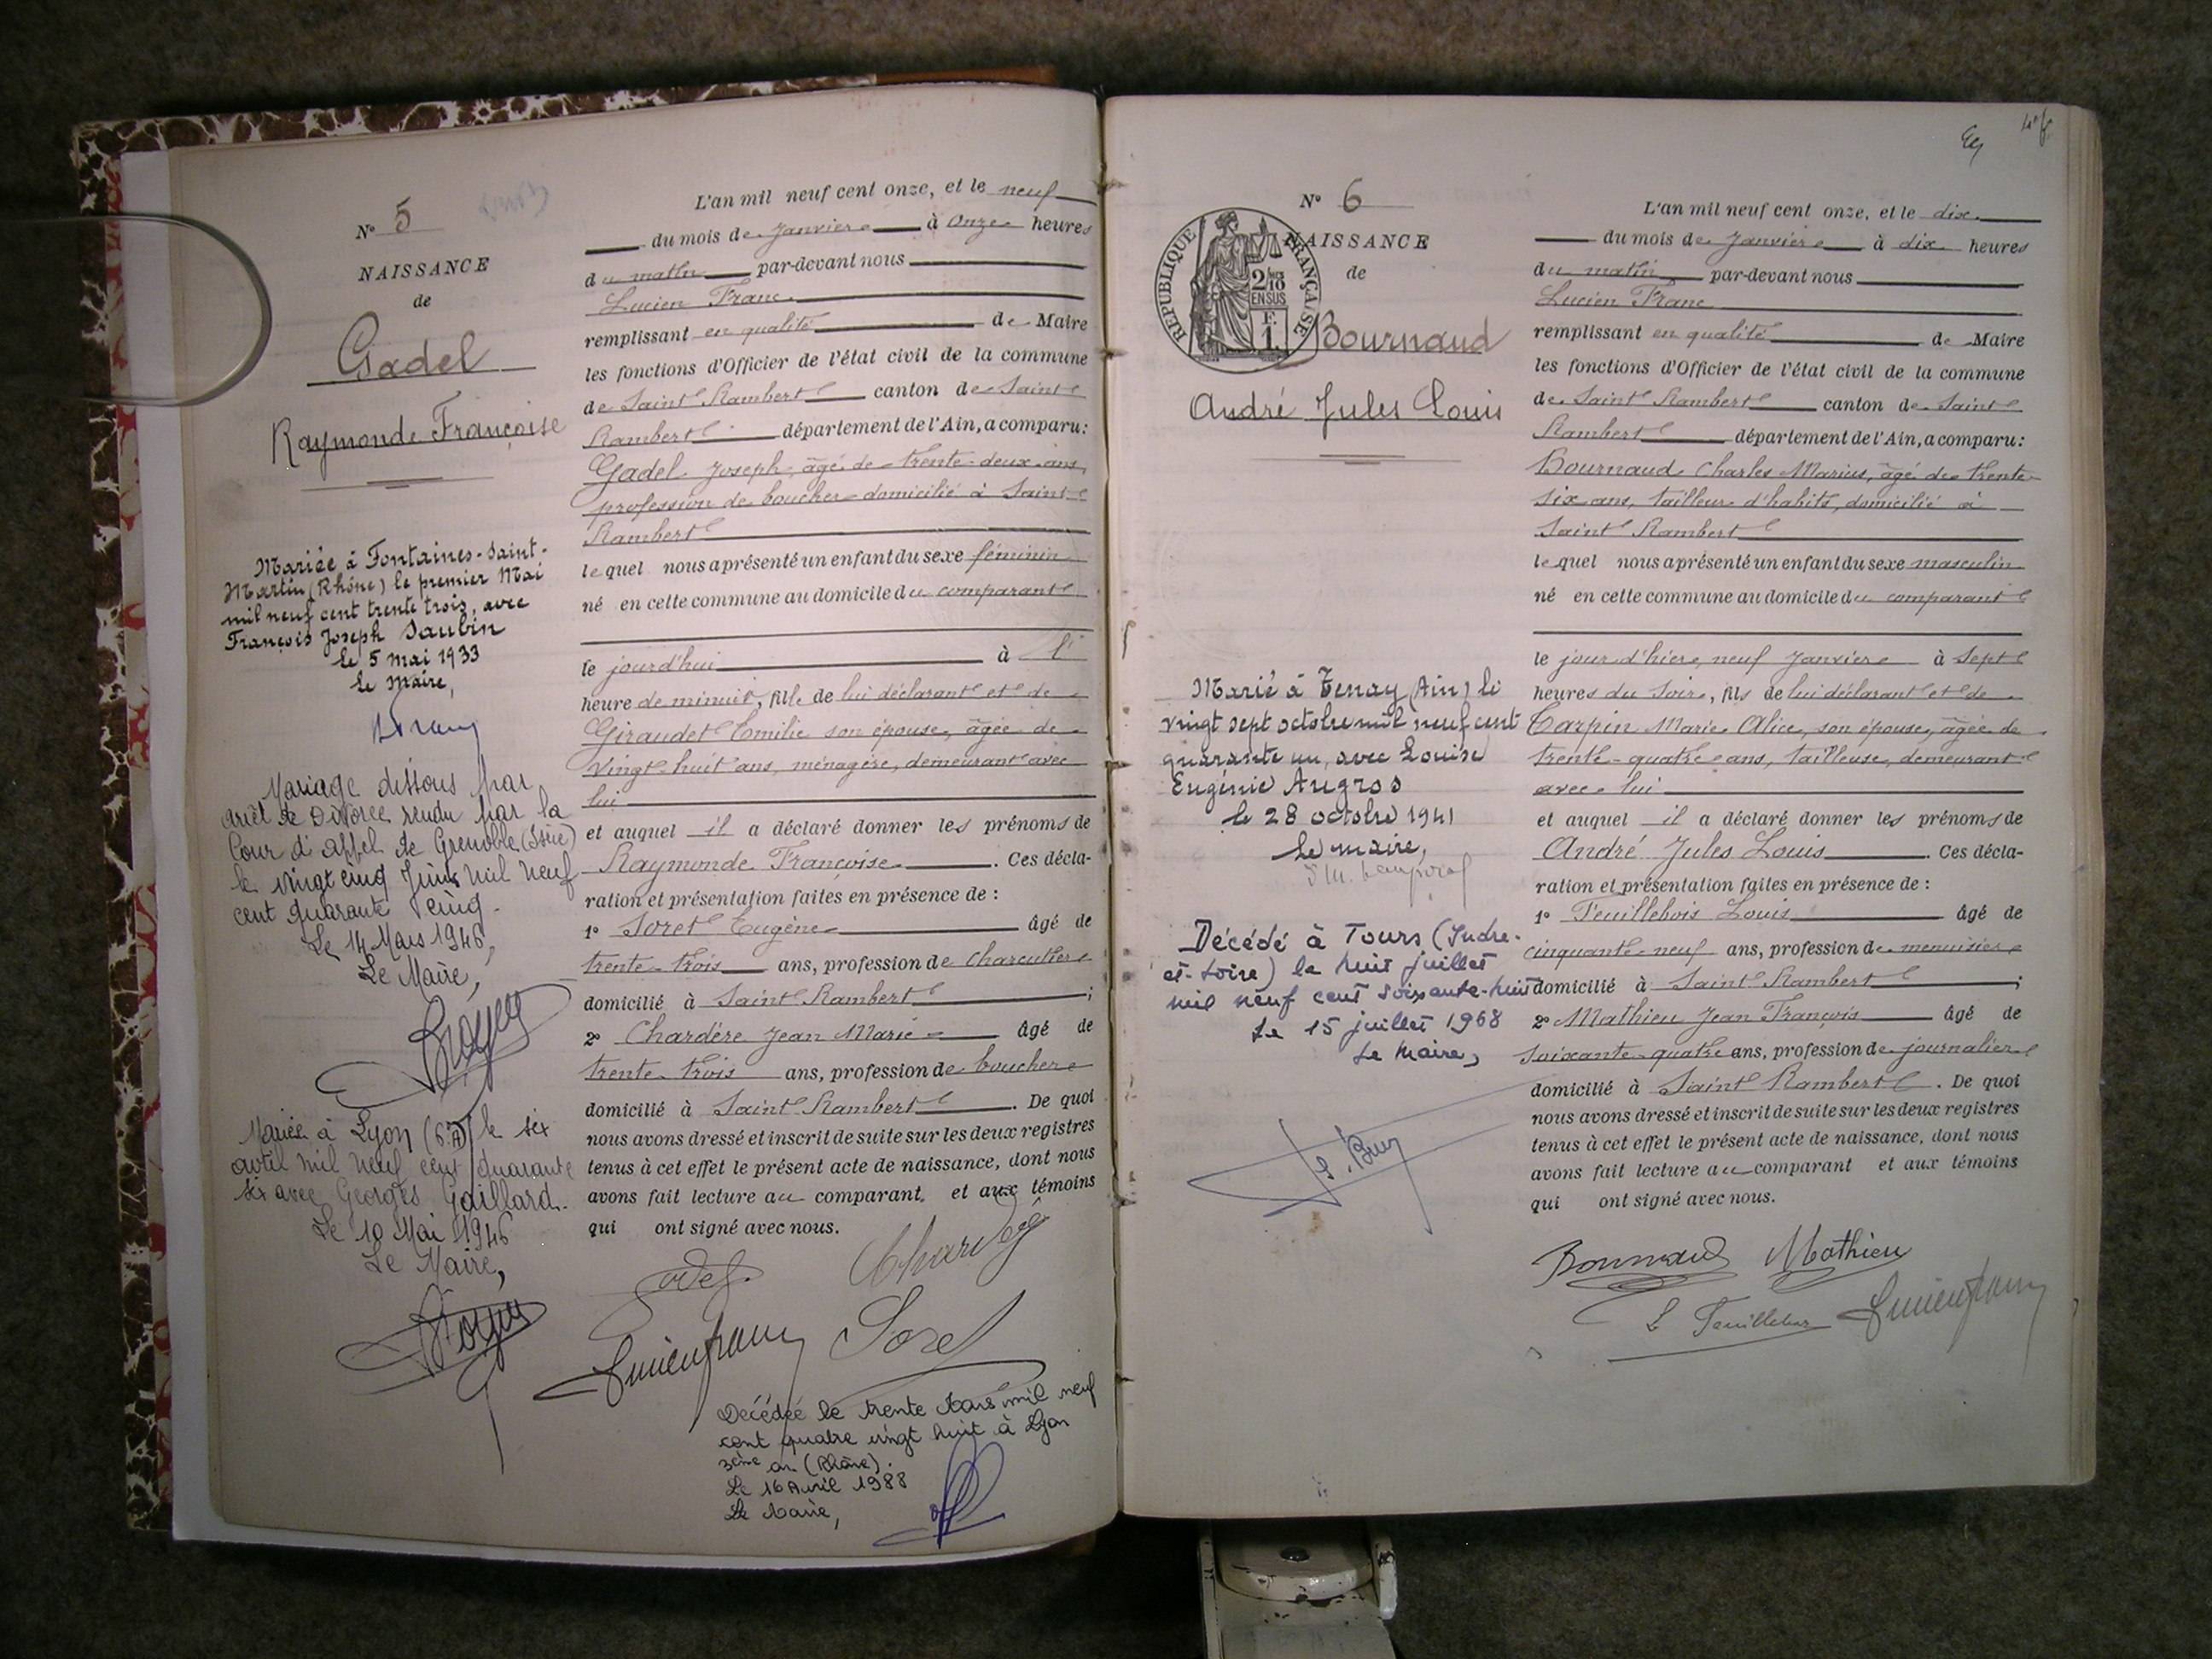 N° 5
NAISSANCE
de
Gadel
Raymonde Françoise
Mariée à Fontaines-Saint-
Martin (Rhône) le premier Mai
mil neuf cent trente trois, avec
François Joseph Saubin
le 5 mai 1933
le Maire,
Mariage dissous par
arrêt de Divorce rendu par la
Cour d'appel de Grenoble (Isère)
le vingt cinq Juin mil neuf
cent quarante cinq.
Le 14 Mars 1946,
Le Maire,
Mariée à Lyon (6°A) le six
avril mil neuf cent quarante
six avec Georges Gaillard.
Le 10 Mai 1946
Le Maire,
L'an mil neuf cent onze, et le neuf
du mois de Janvier à onze heures
du matin par-devant nous
Lucien Franc
remplissant en qualité de Maire
les fonctions d'Officier de l'état civil de la commune
de Saint Rambert canton de Saint
Rambert département de l'Ain, a comparu:
Gadel Joseph, âgé de trente-deux ans,
profession de boucher domicilié à Saint
Rambert
lequel nous a présenté un enfant du sexe féminin
né en cette commune au domicile du comparant
le jourd'hui à l'
heure de minuit, fille de lui déclarant et de
Giraudet Emilie son épouse, âgée de
vingt-huit ans, ménagère, demeurant avec
lui
et auquel il a déclaré donner les prénoms de
Raymonde Françoise. Ces décla-
ration et présentation faites en présence de :
1° Soret Eugène âgé de
trente-trois ans, profession de charcutier
domicilié à Saint Rambert ;
2° Chardère Jean Marie âgé de
trente-trois ans, profession de boucher
domicilié à Saint Rambert. De quoi
nous avons dressé et inscrit de suite sur les deux registres
tenus à cet effet le présent acte de naissance, dont nous
avons fait lecture au comparant et aux témoins
qui ont signé avec nous.
Lucien Franc Soret
Décédée le trente Mars mil neuf
cent quatre vingt huit à Lyon
3ème arr (Rhône).
Le 16 Avril 1988
Le Maire,
N° 6
NAISSANCE
de
RÉPUBLIQUE FRANÇAISE
2/10
EN SUS
F.
1.
Bournaud
André Jules Louis
Marié à Tenay (Ain) le
vingt sept octobre mil neuf cent
quarante un, avec Louise
Eugénie Augros
le 28 octobre 1941
le maire,
Décédé à Tours (Indre-
et-Loire) le huit juillet
mil neuf cent soixante-huit
Le 15 juillet 1968
Le Maire,
L'an mil neuf cent onze, et le dix
du mois de Janvier à dix heures
du matin par-devant nous
Lucien Franc
remplissant en qualité de Maire
les fonctions d'Officier de l'état civil de la commune
de Saint Rambert canton de Saint
Rambert département de l'Ain, a comparu:
Bournaud Charles Marius, âgé de trente-
six ans, tailleur d'habits, domicilié à
Saint Rambert
lequel nous a présenté un enfant du sexe masculin
né en cette commune au domicile du comparant
le jour d'hier, neuf Janvier à sept
heures du soir, fils de lui déclarant et de
Carpin Marie Alice, son épouse, âgée de
trente-quatre ans, tailleuse, demeurant
avec lui
et auquel il a déclaré donner les prénoms de
André Jules Louis. Ces décla-
ration et présentation faites en présence de :
1° Feuillebois Louis âgé de
cinquante-neuf ans, profession de menuisier
domicilié à Saint Rambert ;
2° Mathieu Jean François âgé de
soixante-quatre ans, profession de journalier
domicilié à Saint Rambert. De quoi
nous avons dressé et inscrit de suite sur les deux registres
tenus à cet effet le présent acte de naissance, dont nous
avons fait lecture au comparant et aux témoins
qui ont signé avec nous.
Bournaud Mathieu
L Feuillebois Lucien Franc